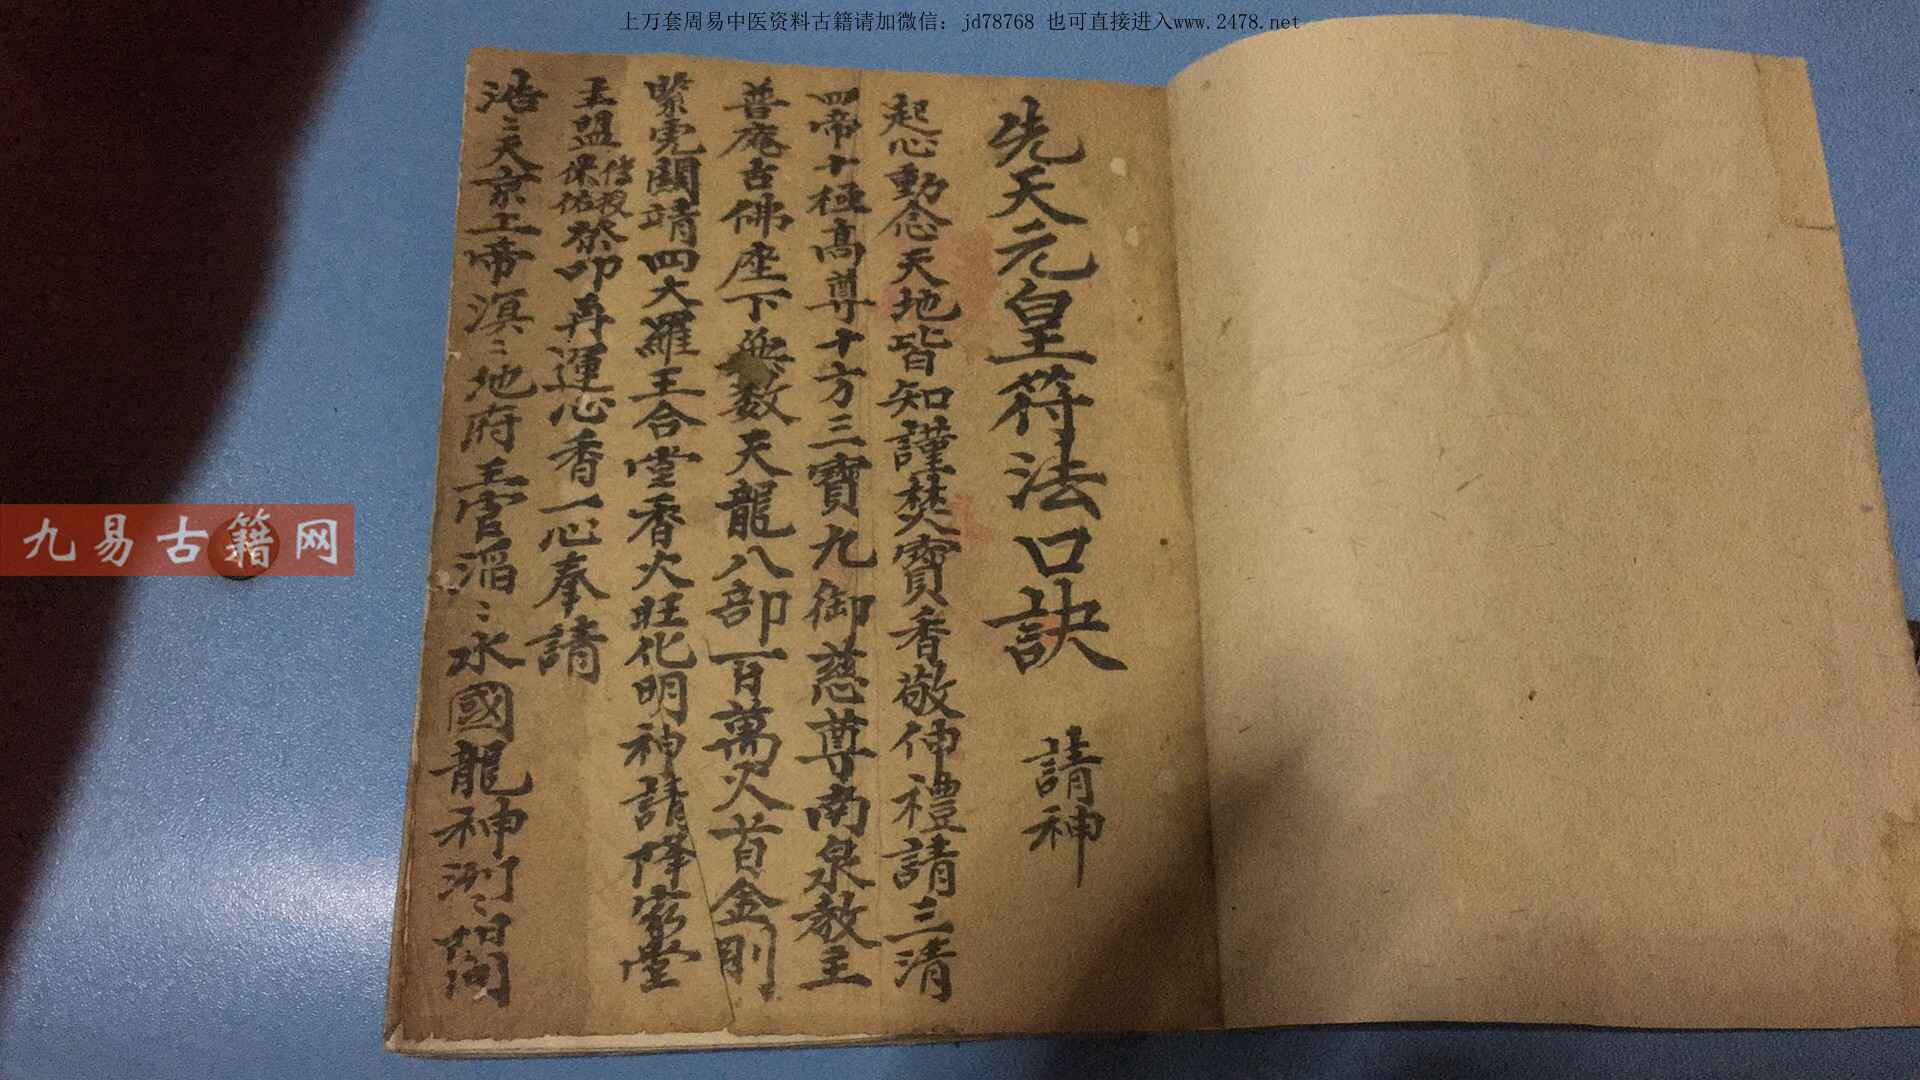 上万套周易中医资料古籍请加微信：jd78768 也可直接进入www.2478.net
先天元皇符法口訣 請神
起心動念天地皆知謹焚寶香敬伸禮請三清
四帝十極高尊十方三寶九御慈尊南泉教主
普庵古佛座下無数天龍八部百萬火首金剛
紫霄關靖四大羅王合堂香火旺化明神請降家堂
主盟保佑叩再運心香一心奉請
浩〻天京上帝溟〻地府王官滔〻水國龍神
九易古籍网